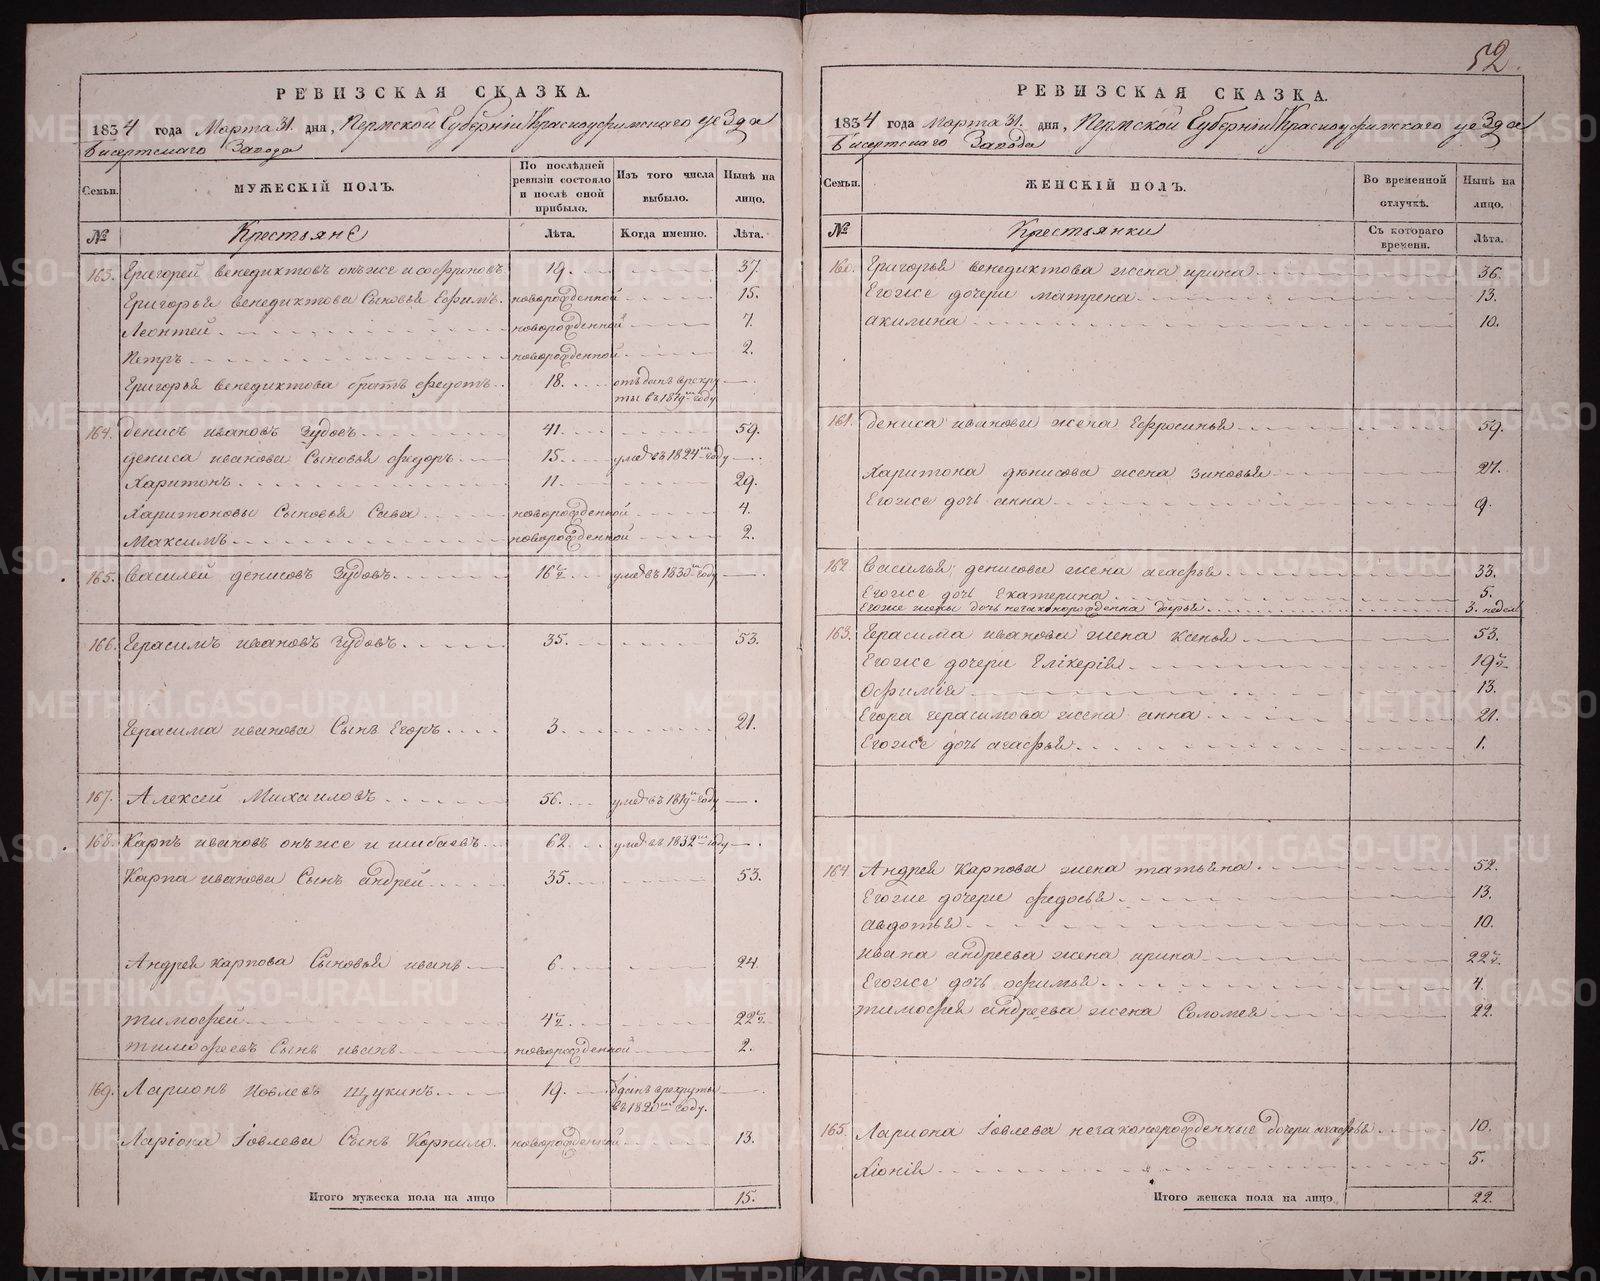 52.
РЕВИЗСКАЯ СКАЗКА.
1834 года Марта 31. дня, Пермской Губерніи Красноуфимскаго уезда
Бисертскаго Завода
Семьи.
МУЖЕСКІЙ ПОЛЪ.
По послѣдней ревизіи состояло и послѣ оной прибыло.
Изъ того числа выбыло.
Нынѣ на лицо.
№
Крестьяне
Лѣта.
Когда именно.
Лѣта.
163. Григорей венедиктовъ онъ же и софроновъ 19. 37.
Григорья венедиктова Сыновья Ефимъ. новорожденной 15.
Леонтей новорожденной 7.
Петръ новорожденной 2.
Григорья венедиктова братъ федотъ 18. отъданъ врекру
ты въ 1819м году
164. денисъ ивановъ Зудовъ 41. 59.
дениса иванова Сыновья федоръ 15. умеръ 1824м году
Харитонъ 11. 29.
Харитоновы Сыновья Савва новорожденной 4.
Максимъ новорожденной 2.
165. Василей денисовъ Зудовъ 16½ умеръ 1830м году
166. Герасимъ ивановъ Зудовъ 35. 53.
Герасима иванова Сынъ Егоръ 3. 21.
167. Алексей Михаиловъ 56. умеръ 1819м году
168. Карпъ ивановъ онъ же и шибаевъ 62. умеръ 1832м году
Карпа иванова Сынъ андрей 35. 53.
Андрея карпова Сыновья иванъ 6. 24.
тимофей 4½ 22½
тимофеевъ Сынъ иванъ новорожденной 2.
169. Ларионъ Иовлевъ Щукинъ 19. Зданъ врекруты
въ 1820м году.
Ларіона Іовлева Сынъ Корнило новорожденной 13.
Итого мужеска пола на лицо 15.
РЕВИЗСКАЯ СКАЗКА.
1834 года Марта 31. дня, Пермской Губерніи Красноуфимскаго уезда
Бисертскаго Завода
Семьи.
ЖЕНСКІЙ ПОЛЪ.
Во временной отлучкѣ.
Нынѣ на лицо.
№
Крестьянки
Съ котораго времени.
Лѣта.
160. Григорья венедиктова жена ирина 36.
Егоже дочери матрена 13.
акилина 10.
161. дениса иванова жена Ефросинья 59.
Харитона денисова жена Зиновья 27.
Егоже дочь анна 9.
162 Василья денисова жена агафья 33.
Егоже дочь Екатерина 5.
Егоже жены дочь незаконорожденна дарья 3. недел
163. Герасима иванова жена Ксенья 53.
Егоже дочери Гликерія 19½
Офимія 13.
Егора герасимова жена анна 21.
Егоже дочь агафья 1.
164. Андрея Карпова жена татьяна 52.
Егоже дочери федосья 13.
авдотья 10.
ивана андреева жена ирина 22½
Егоже дочь офимья 4.
тимофея андреева жена Соломея 22.
165. Лариона Іовлева незаконорожденные дочери агафья 10.
Хіонія 5.
Итого женска пола на лицо 22.